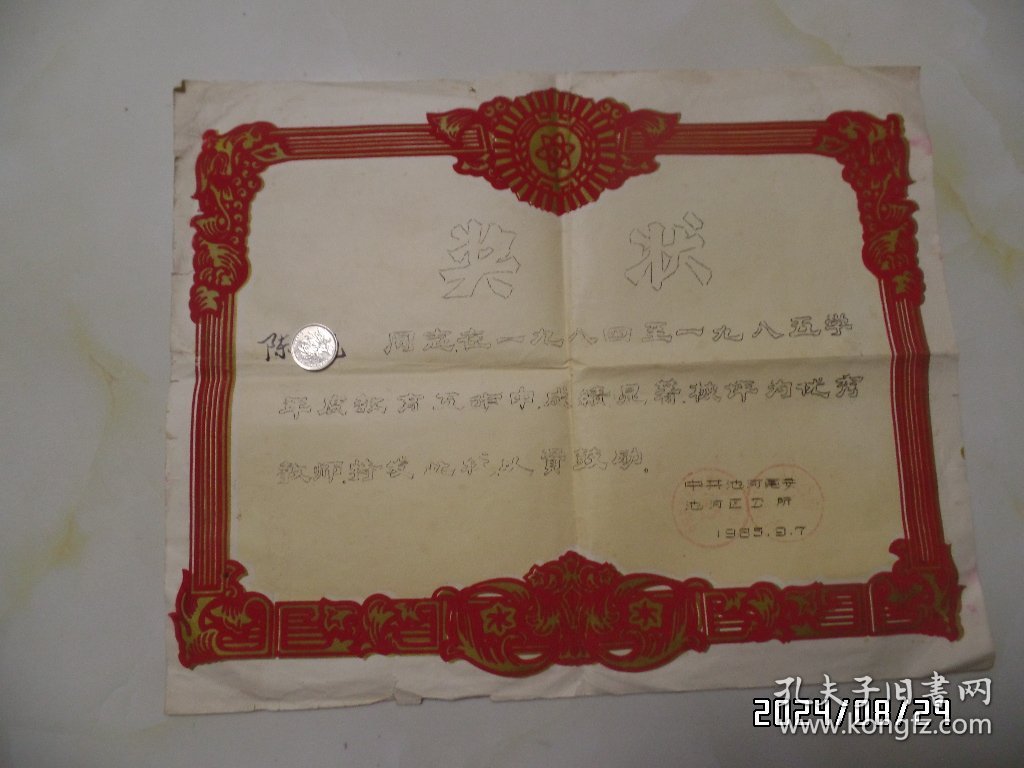 奖 状
陈 同志在一九八四至一九八五学
年度教育工作中,成绩显著,被评为优秀
教师,特发此状,以资鼓励.
中共池河区委
池河区公所
1985.9.7
孔夫子旧書网
2024/08/29
www.kongfz.com